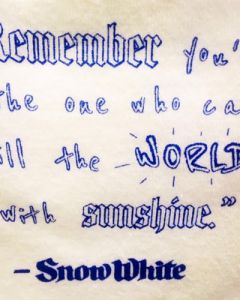 Remember you'
the one who ca
ill the WORLD
with sunshine."
- Snow White